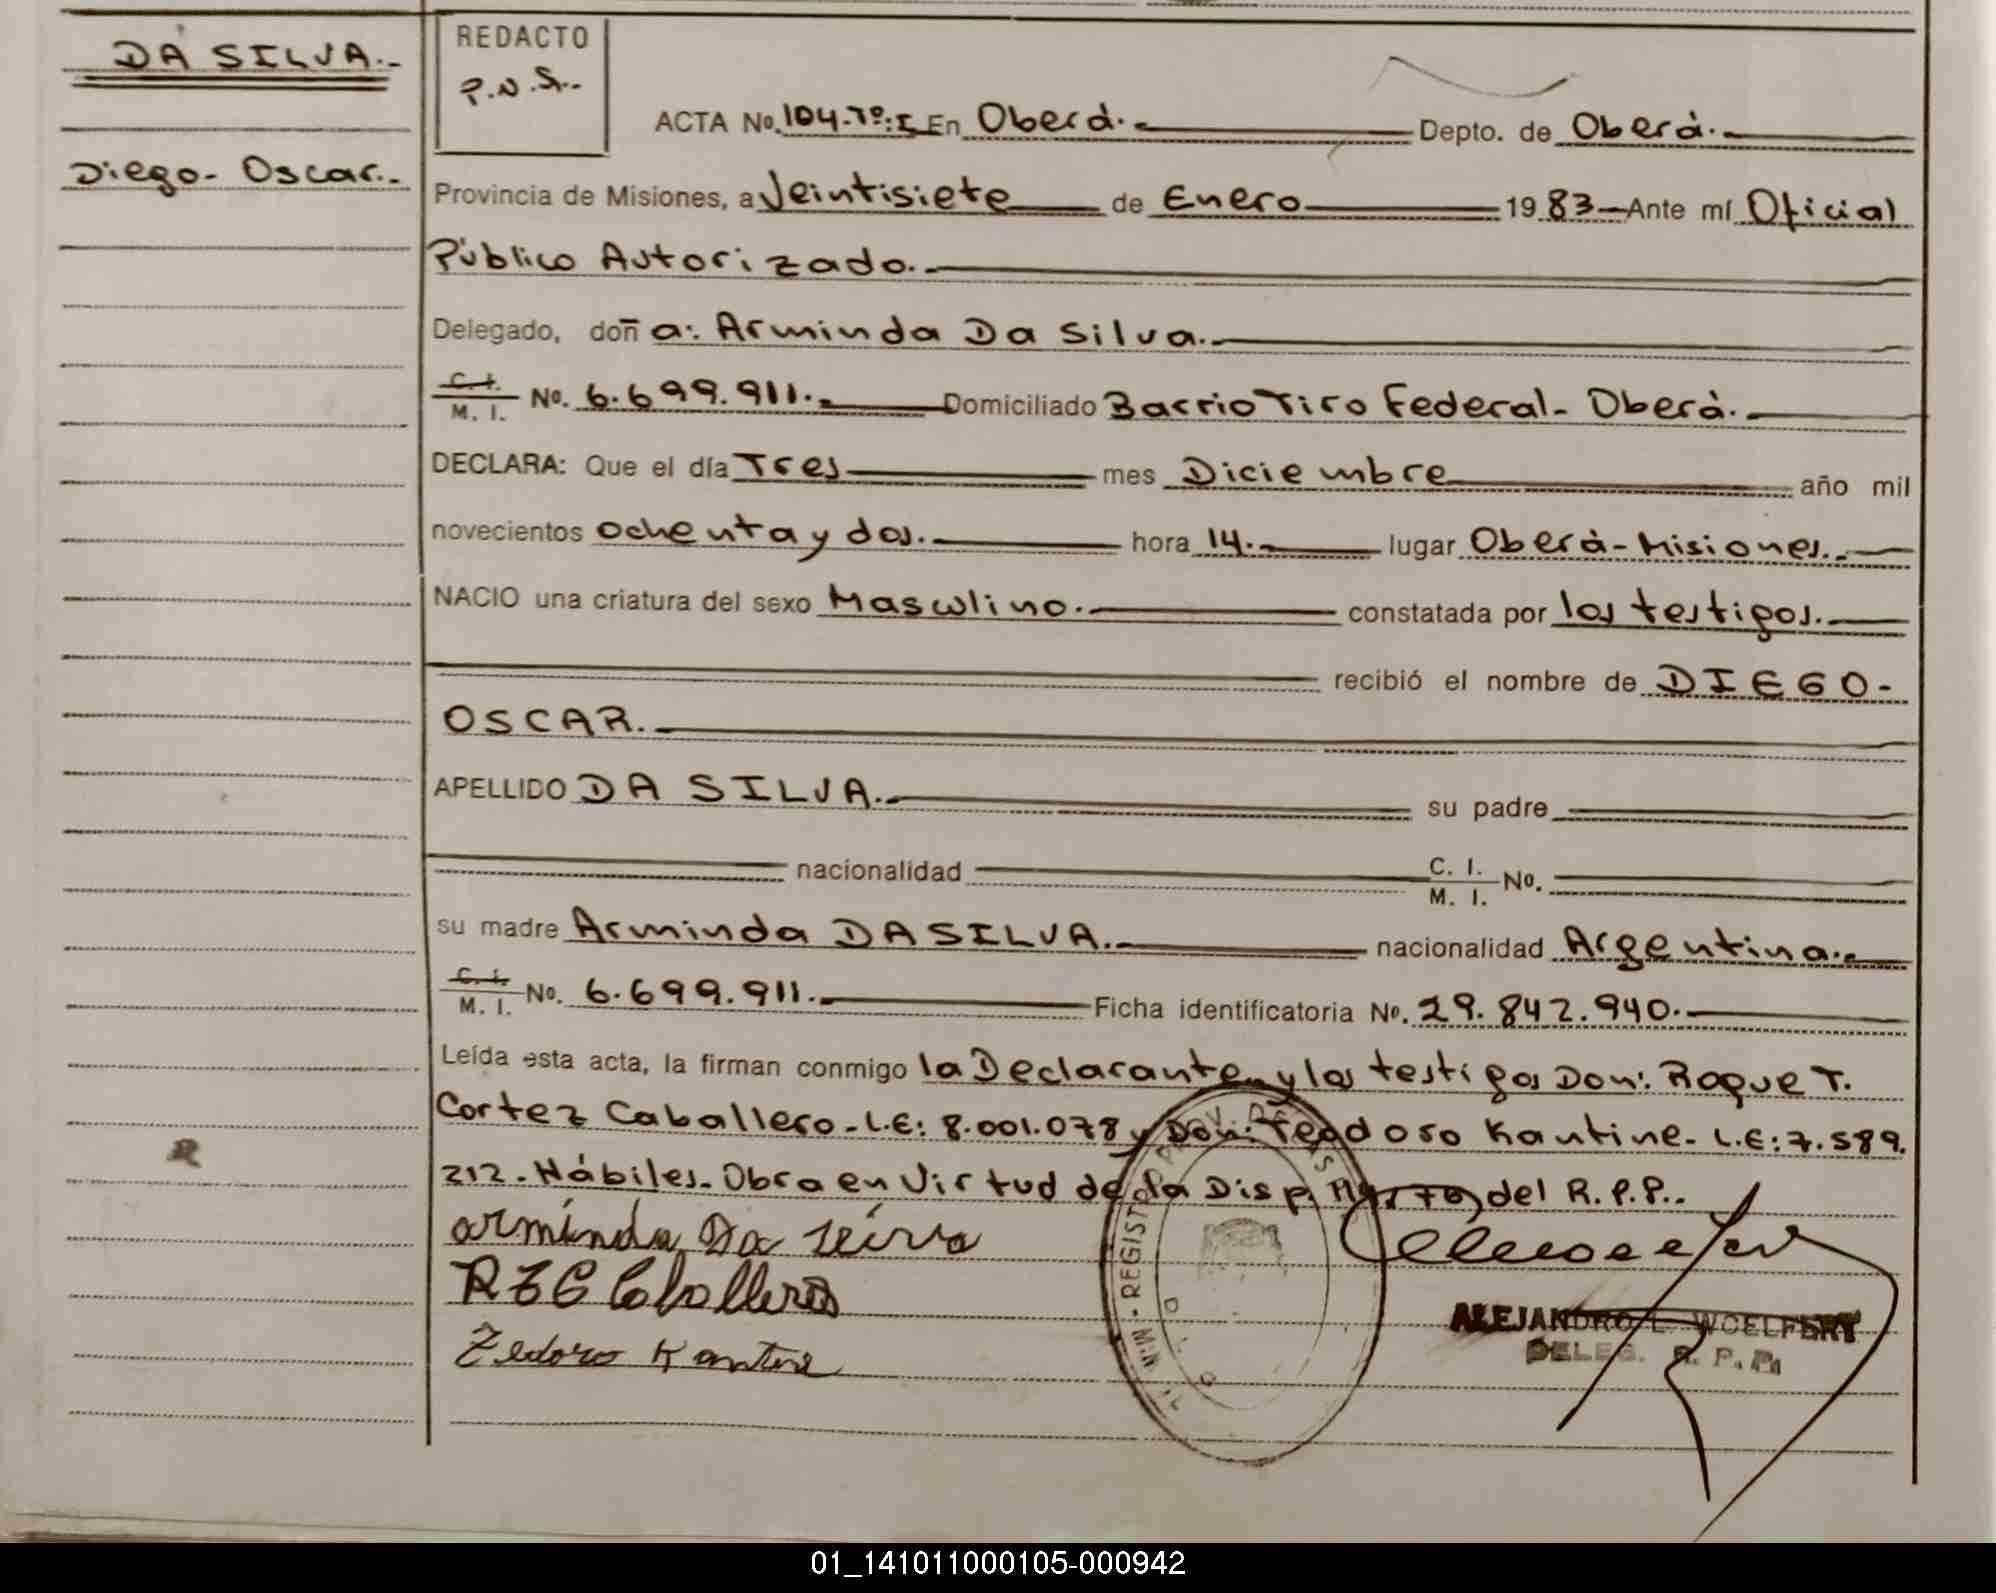 DA SILVA.-
Diego- Oscar.-
REDACTO
P.N.S.-
ACTA No. 104-Tº:I En Oberá.- Depto. de Oberá.-
Provincia de Misiones, a Veintisiete de Enero 1983 Ante mí Oficial
Público Autorizado.-
Delegado, doña: Arminda Da Silva.-
C. I.
M. I. No. 6.699.911.- Domiciliado Barrio Tiro Federal- Oberá.-
DECLARA: Que el día Tres mes Diciembre año mil
novecientos ochenta y dos.- hora 14.- lugar Oberá-Misiones.-
NACIO una criatura del sexo Masculino.- constatada por los testigos.-
recibió el nombre de DIEGO-
OSCAR.-
APELLIDO DA SILVA.- su padre
nacionalidad C. I.
M. I. No.
su madre Arminda DA SILVA.- nacionalidad Argentina.-
C. I.
M. I. No. 6.699.911.- Ficha identificatoria No. 29.842.940.-
Leída esta acta, la firman conmigo la Declarante y los testigos Don: Roque T.
Cortez Caballero- L.E: 8.001.078 y Don: Teodoro Kantine- L.E: 7.589.
212.- Hábiles- Obra en Virtud de la Disp. del R.P.P.-
arminda Da
Caballero
Kantine
REGISTRO PROV. DE LAS
ALEJANDRO L. WOELFERT
DELEG. R. P. P.
01_141011000105-000942